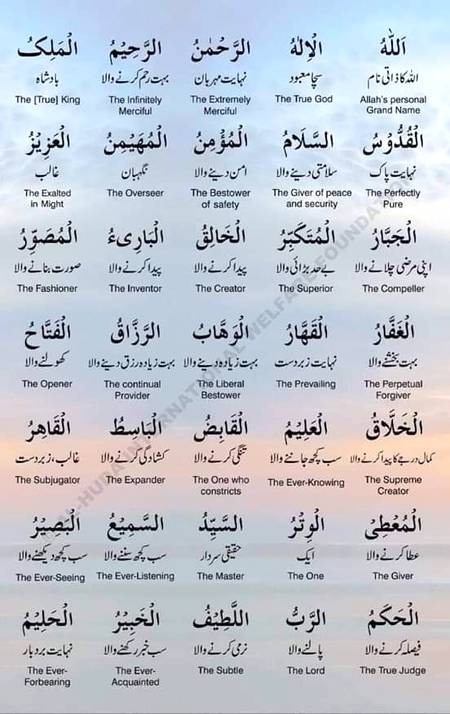 اَللّٰهُ
اللہ کا ذاتی نام
Allah's personal
Grand Name
اَلْاِلٰهُ
سچا معبود
The True God
اَلرَّحْمٰنُ
نہایت مہربان
The Extremely
Merciful
اَلرَّحِيْمُ
بہت رحم کرنے والا
The Infinitely
Merciful
اَلْمَلِكُ
بادشاہ
The [True] King
اَلْقُدُّوْسُ
نہایت پاک
The Perfectly
Pure
اَلسَّلَامُ
سلامتی دینے والا
The Giver of peace
and security
اَلْمُؤْمِنُ
امن دینے والا
The Bestower
of safety
اَلْمُهَيْمِنُ
نگہبان
The Overseer
اَلْعَزِيْزُ
غالب
The Exalted
in Might
اَلْجَبَّارُ
اپنی مرضی چلانے والا
The Compeller
اَلْمُتَكَبِّرُ
بے حد بڑائی والا
The Superior
اَلْخَالِقُ
پیدا کرنے والا
The Creator
اَلْبَارِىءُ
پیدا کرنے والا
The Inventor
اَلْمُصَوِّرُ
صورت بنانے والا
The Fashioner
اَلْغَفَّارُ
بہت بخشنے والا
The Perpetual
Forgiver
اَلْقَهَّارُ
نہایت زبردست
The Prevailing
اَلْوَهَّابُ
بہت زیادہ دینے والا
The Liberal
Bestower
اَلرَّزَّاقُ
بہت زیادہ رزق دینے والا
The continual
Provider
اَلْفَتَّاحُ
کھولنے والا
The Opener
اَلْخَلَّاقُ
کمال درجے کا پیدا کرنے والا
The Supreme
Creator
اَلْعَلِيْمُ
سب کچھ جاننے والا
The Ever-Knowing
اَلْقَابِضُ
تنگی کرنے والا
The One who
constricts
اَلْبَاسِطُ
کشادگی کرنے والا
The Expander
اَلْقَاهِرُ
غالب، زبردست
The Subjugator
اَلْمُعْطِیْ
عطا کرنے والا
The Giver
اَلْوِتْرُ
ایک
The One
اَلسَّيِّدُ
حقیقی سردار
The Master
اَلسَّمِيْعُ
سب کچھ سننے والا
The Ever-Listening
اَلْبَصِيْرُ
سب کچھ دیکھنے والا
The Ever-Seeing
اَلْحَكَمُ
فیصلہ کرنے والا
The True Judge
اَلرَّبُّ
پالنے والا
The Lord
اَللَّطِيْفُ
نرمی کرنے والا
The Subtle
اَلْخَبِيْرُ
سب خبر رکھنے والا
The Ever-
Acquainted
اَلْحَلِيْمُ
نہایت بردبار
The Ever-
Forbearing
AL-HUDA INTERNATIONAL WELFARE FOUNDAT